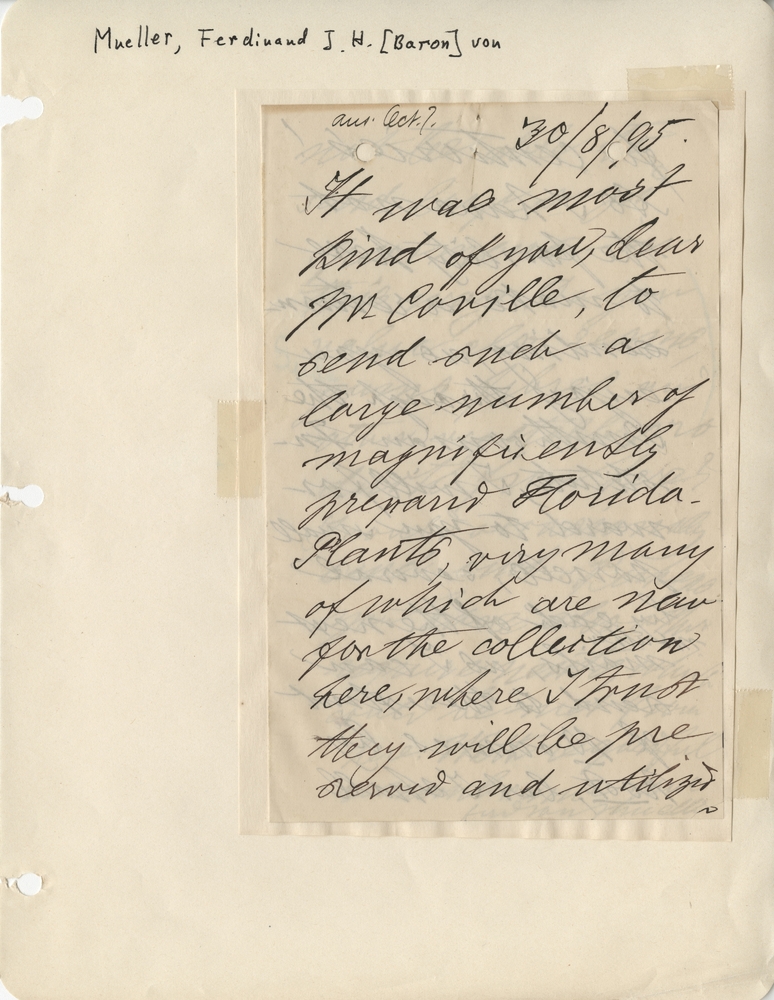 Mueller, Ferdinand J. H. [Baron] von
ans. Oct. 7.
30/8/95.
It was most
kind of you, dear
Mr Coville, to
send such a
large number of
magnificently
prepared Florida-
Plants, very many
of which are new
for the collection
here, where I trust
they will be pre
served and utilized